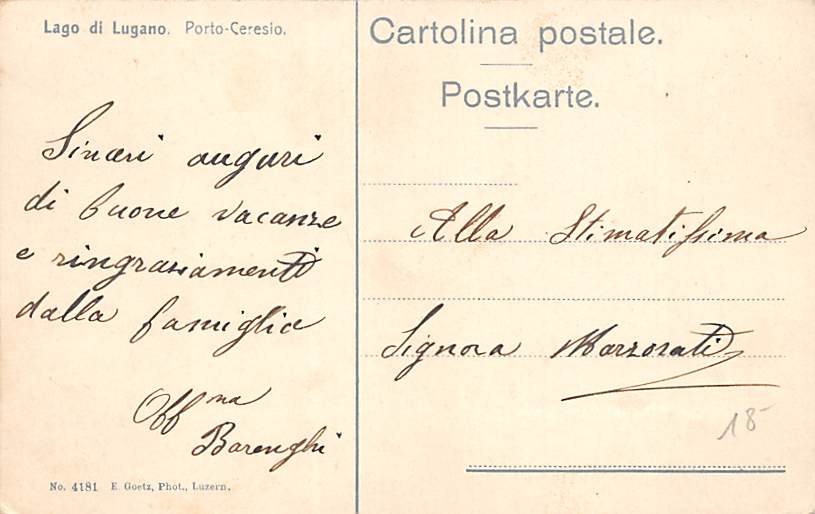 Lago di Lugano. Porto-Ceresio.
Sinceri auguri
di buone vacanze
e ringraziamenti
dalla famiglia
Off na
Barenghi
No. 4181 E. Goetz, Phot., Luzern.
Cartolina postale.
Postkarte.
Alla Stimatissima
Signora Marzorati
18-